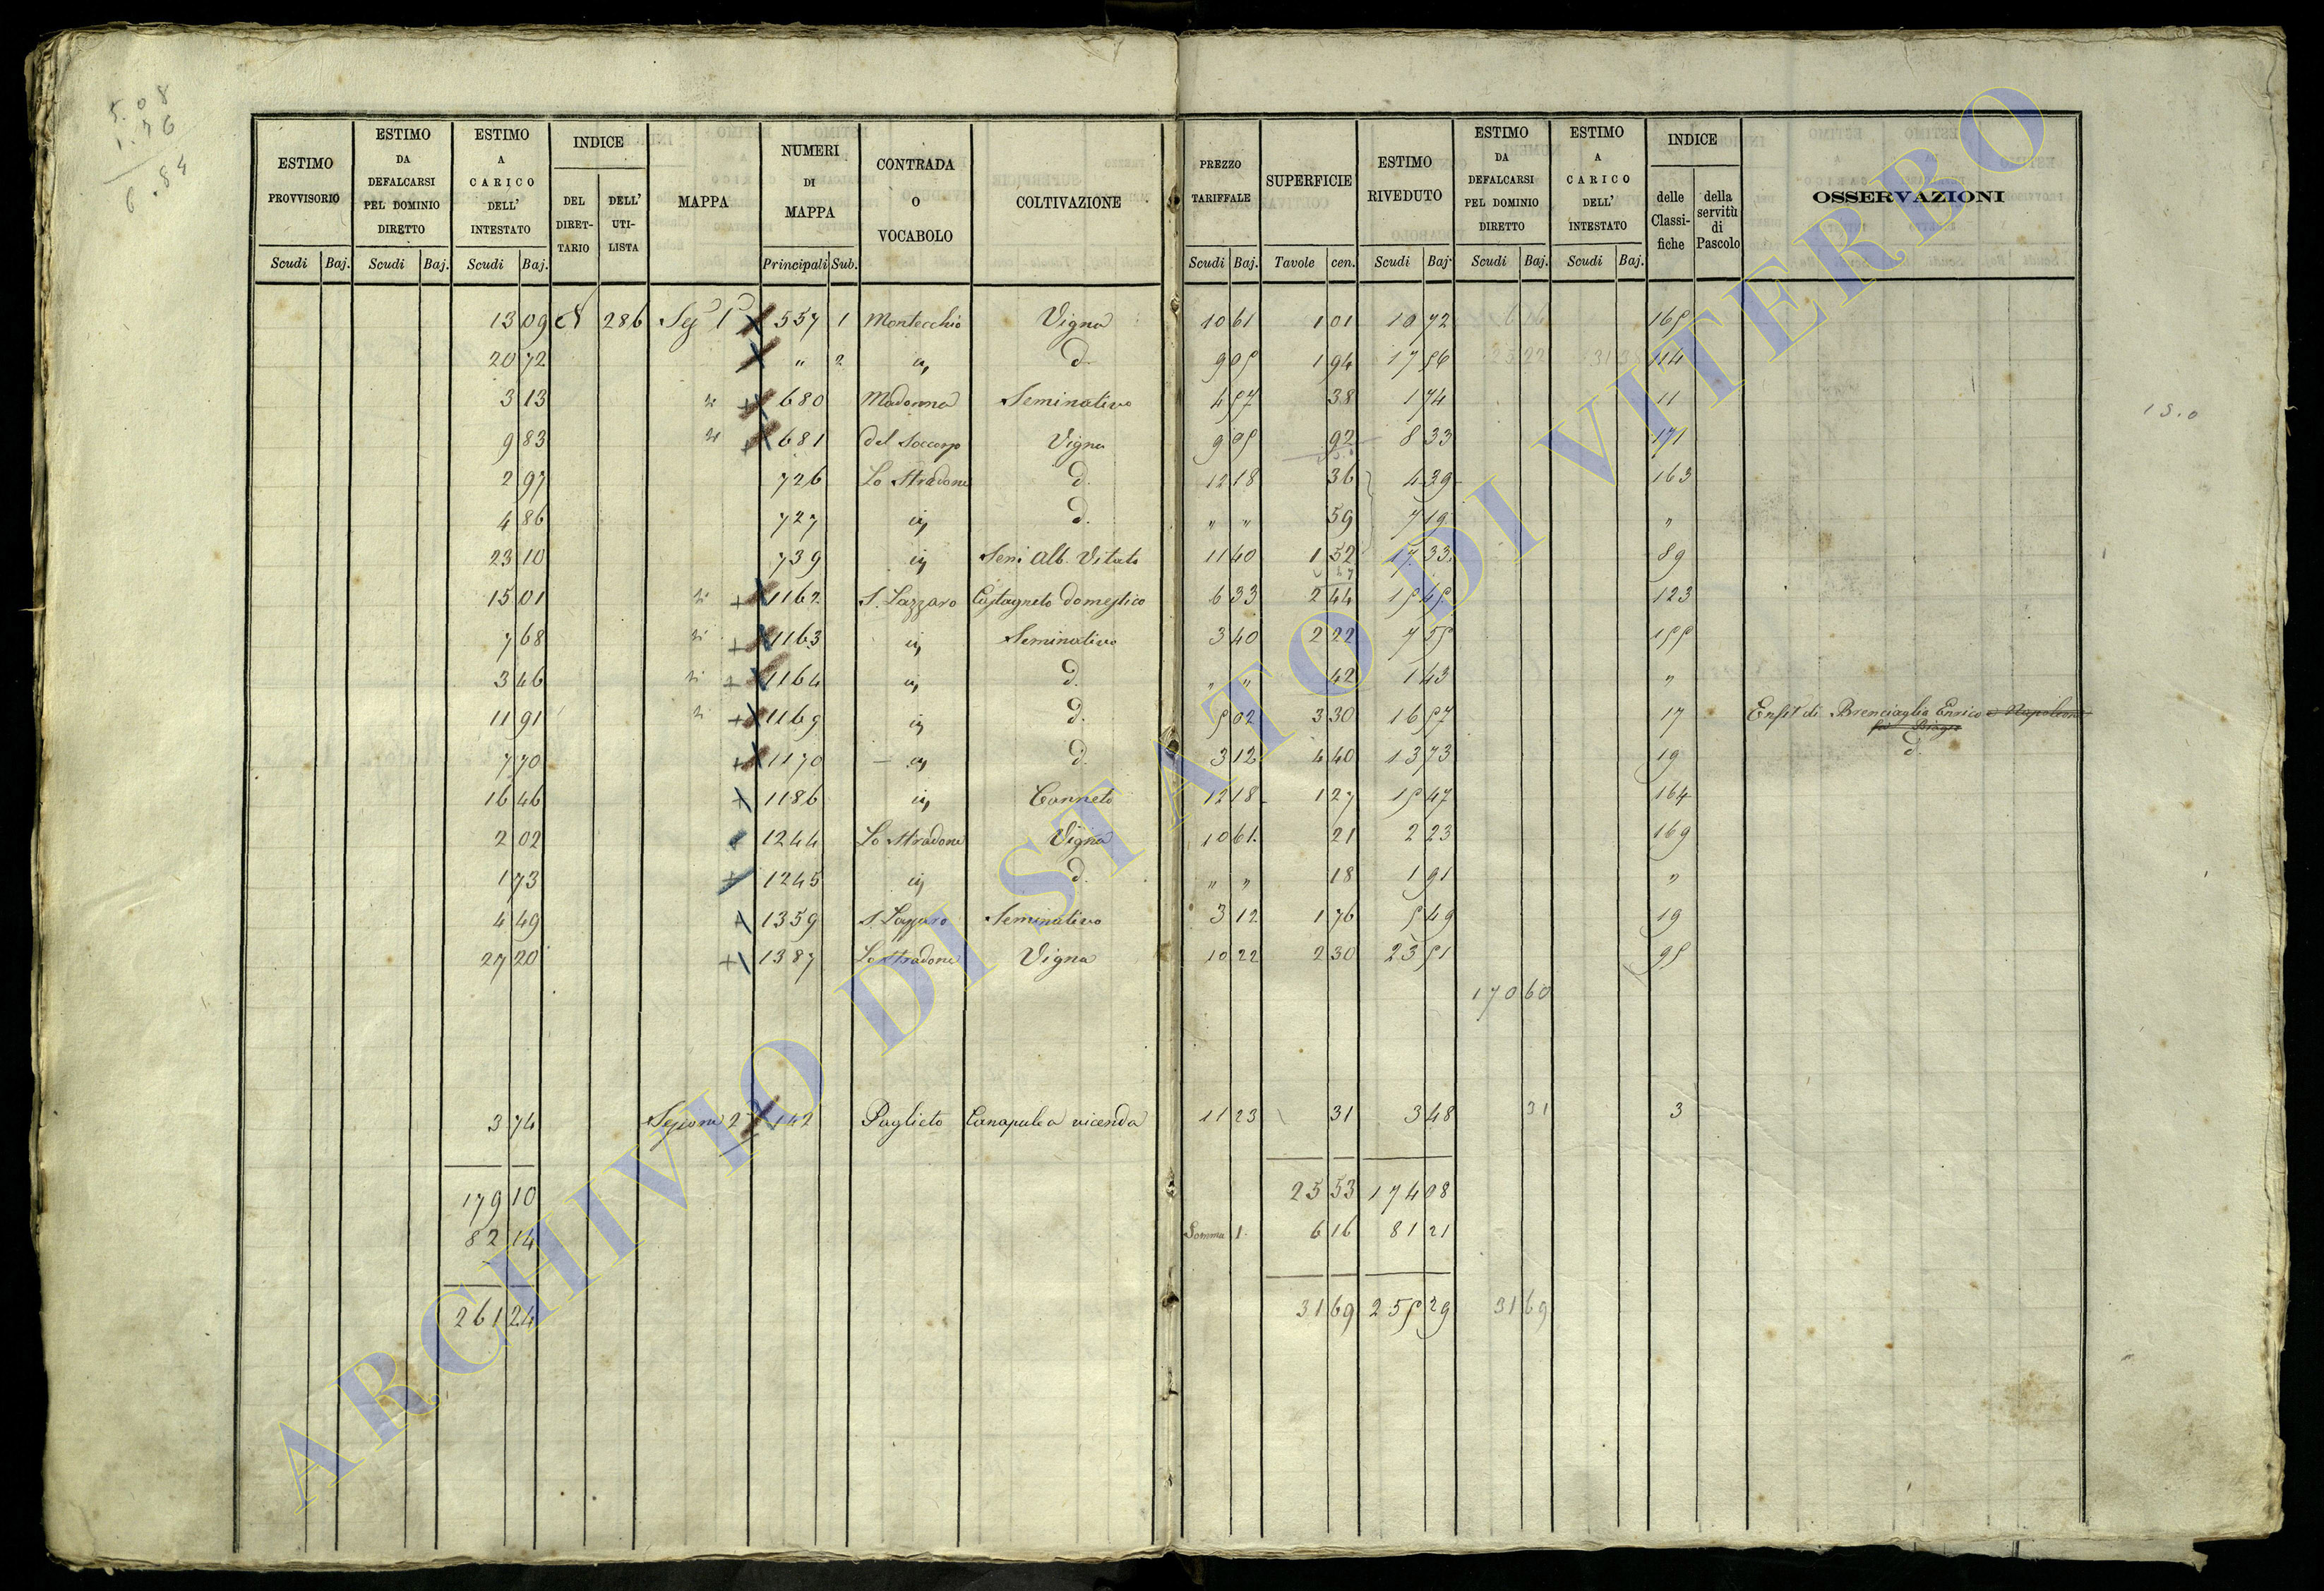 5.08
1.76
6.84
ESTIMO PROVVISORIO
ESTIMO DA DEFALCARSI PEL DOMINIO DIRETTO
ESTIMO A CARICO DELL' INTESTATO
INDICE
DEL DIRET-TARIO
DELL' UTI-LISTA
MAPPA
NUMERI DI MAPPA
CONTRADA O VOCABOLO
COLTIVAZIONE
PREZZO TARIFFALE
SUPERFICIE
ESTIMO RIVEDUTO
ESTIMO DA DEFALCARSI PEL DOMINIO DIRETTO
ESTIMO A CARICO DELL' INTESTATO
INDICE
delle Classi-fiche
della servitù di Pascolo
OSSERVAZIONI
Scudi Baj. Scudi Baj. Scudi Baj. Principali Sub. Scudi Baj. Tavole cen. Scudi Baj. Scudi Baj. Scudi Baj.
13 09 286 557 1 Montecchio Vigna 10 61 1 01 10 72 165
20 72 " 2 d. 9 05 1 94 17 56 114
3 13 680 Madonna Seminativo 4 57 38 1 74 11
9 83 681 del Soccorso Vigna 9 05 92 8 33 171
2 97 726 Lo Stradone d. 12 18 36 4 39 163
4 86 727 d. " " 59 7 19 "
23 10 739 Semi Alb. Vitato 11 40 1 52 17 33 89
15 01 1162 S. Lazzaro Castagneto domestico 6 33 2 44 15 45 123
7 68 1163 Seminativo 3 40 2 22 7 55 155
3 46 1164 d. " " 42 1 43 "
11 91 1169 d. 5 02 3 30 16 57 17 Enfit. di Brenciaglia Enrico e Napoleone
fu Biagio
7 70 1170 d. 3 12 4 40 13 73 19 d.
16 46 1186 Canneto 12 18 1 27 15 47 164
2 02 1244 Lo Stradone Vigna 10 61 21 2 23 169
1 73 1245 d. " " 18 1 91 "
4 49 1359 S. Lazzaro Seminativo 3 12 1 76 5 49 19
27 20 1387 Lo Stradone Vigna 10 22 2 30 23 51 95
170 60
3 74 Sezione 2 142 Paglieto Canapule a vicenda 11 23 31 3 48 31 3
179 10 25 53 174 08
82 14 Somma 1. 6 16 81 21
261 24 31 69 255 29 31 69
ARCHIVIO DI STATO DI VITERBO